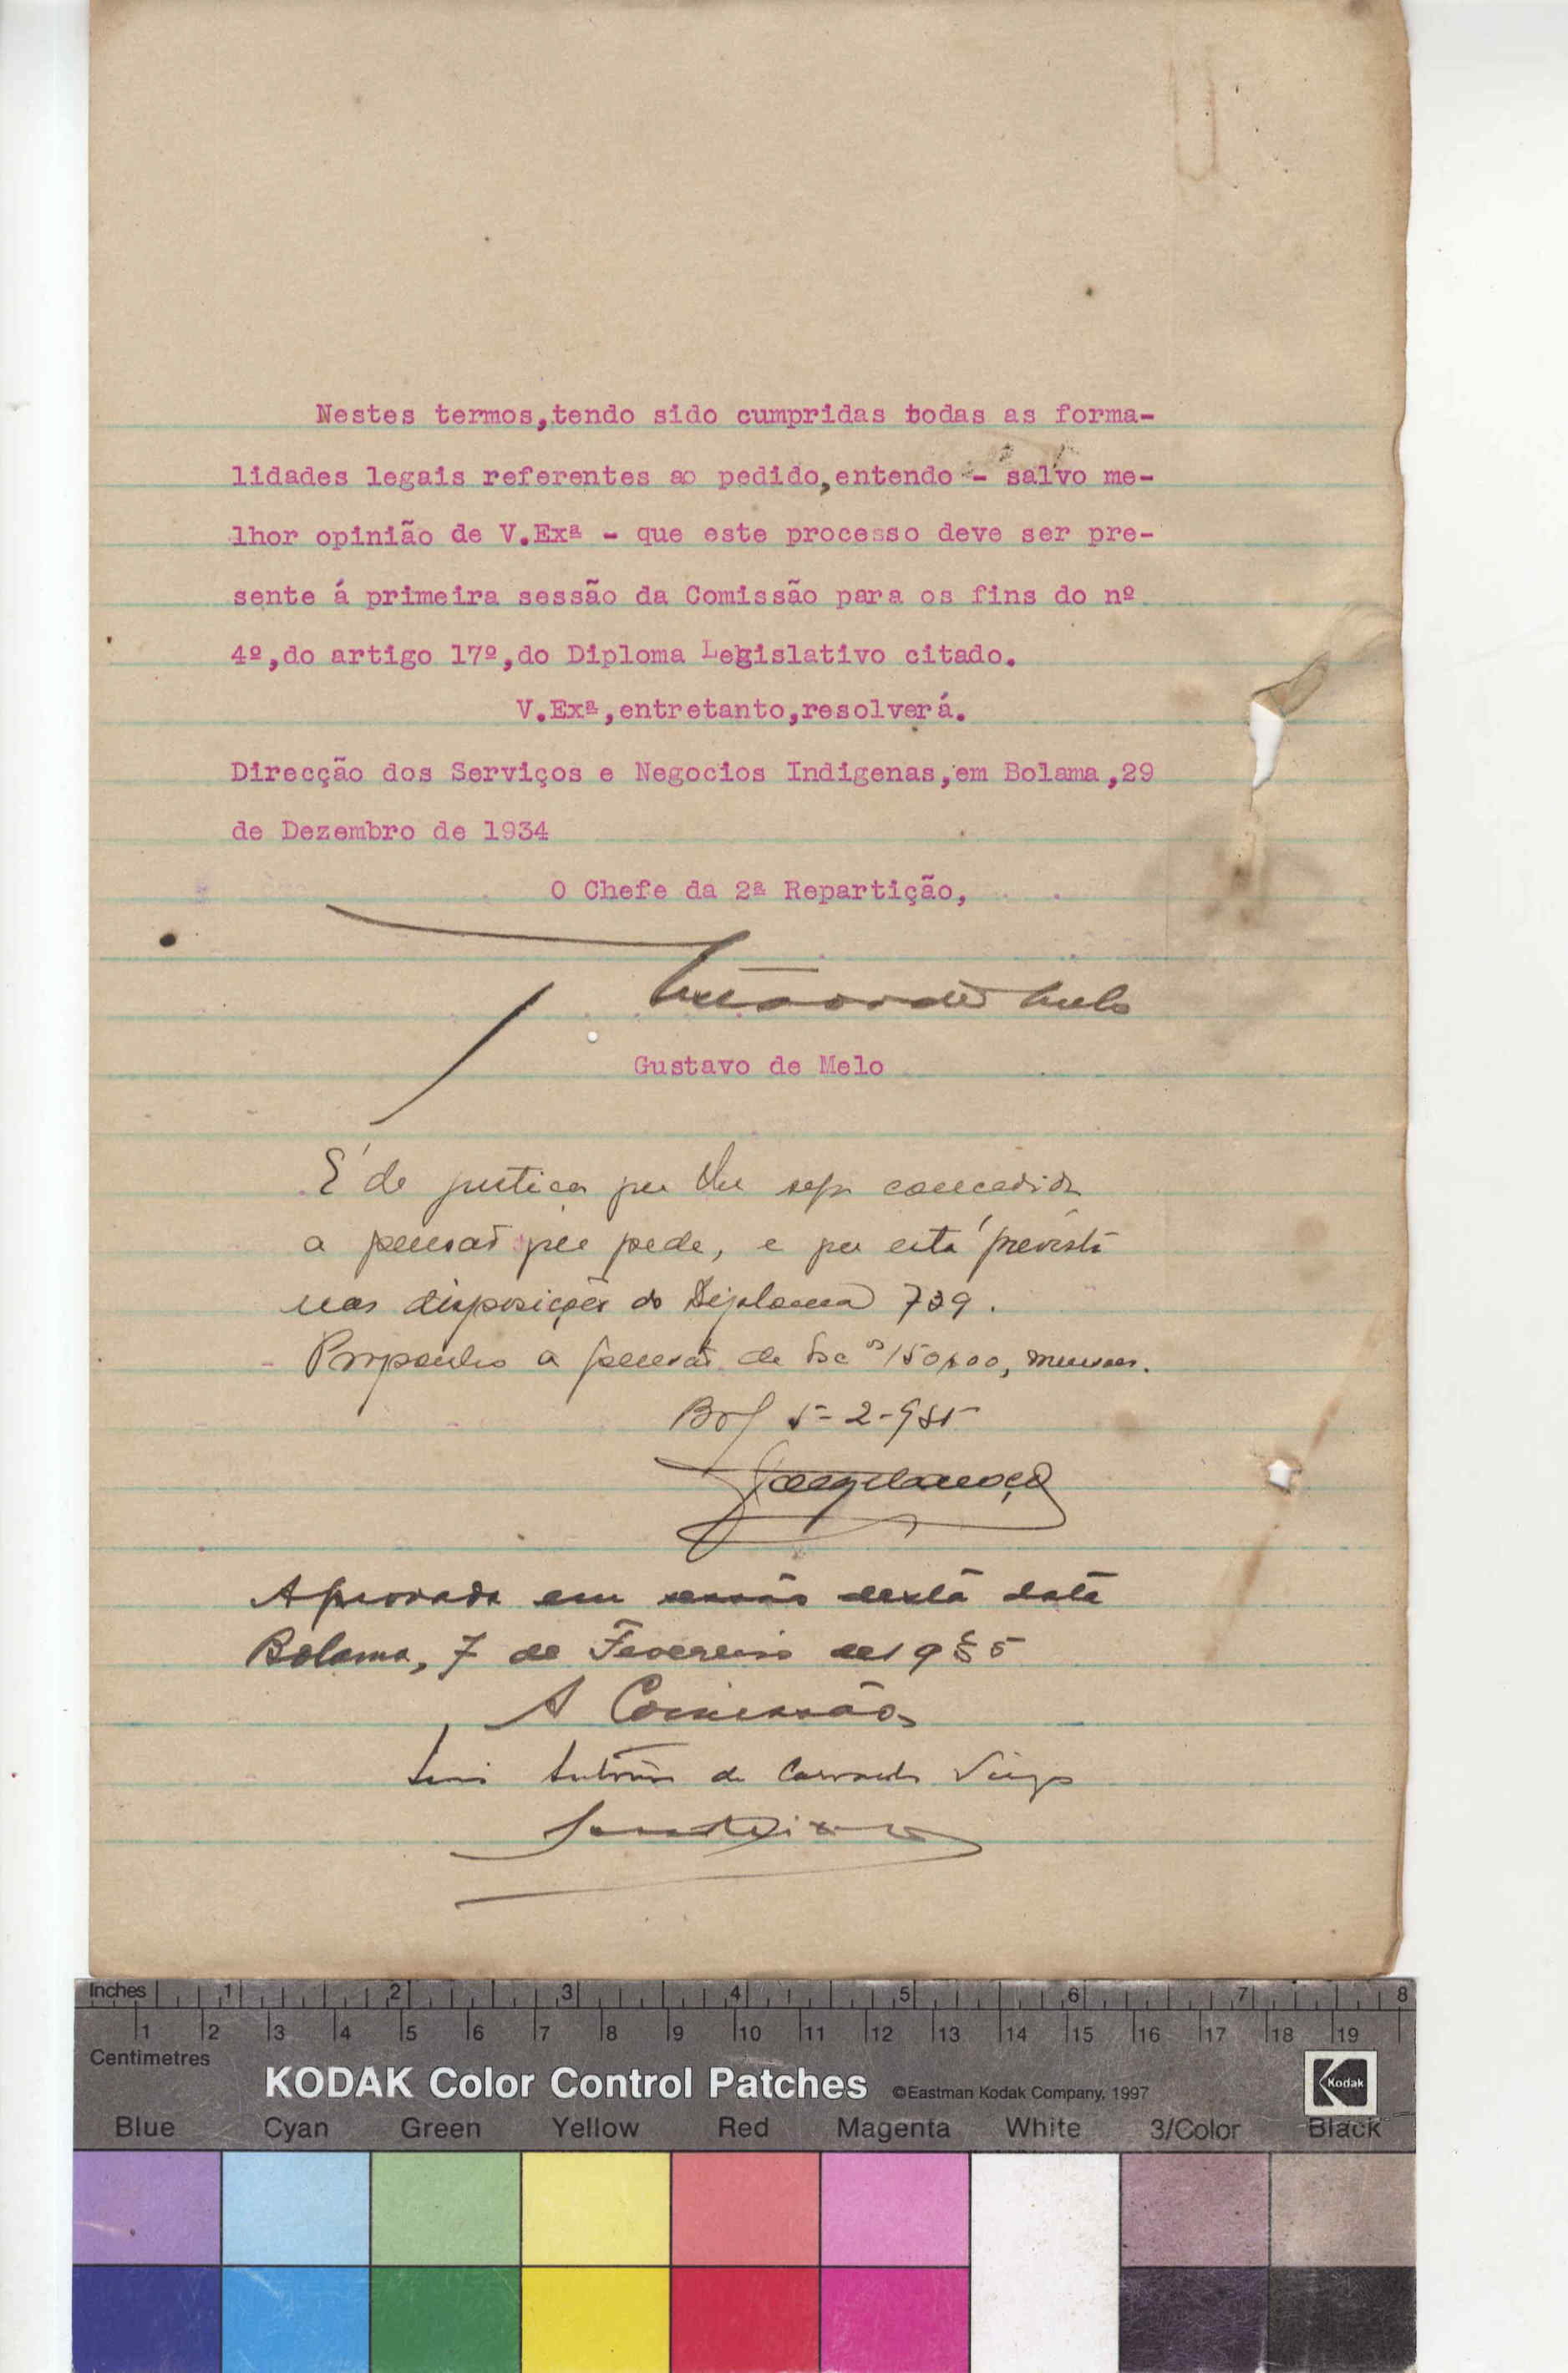 Nestes termos,tendo sido cumpridas todas as forma-
lidades legais referentes ao pedido,entendo - salvo me-
lhor opinião de V.Exª - que este processo deve ser pre-
sente á primeira sessão da Comissão para os fins do nº
4º,do artigo 17º,do Diploma Legislativo citado.
V.Exª,entretanto,resolverá.
Direcção dos Serviços e Negocios Indigenas,em Bolama,29
de Dezembro de 1934
O Chefe da 2ª Repartição,
Gustavo de Melo
É de justiça que lhe seja concedida
a pensão que pede, e que está prevista
nas disposições do Diploma 739.
Proponho a pensão de Esc os 150$00, mensaes.
Bol 5-2-935
Aprovada em sessão desta data
Bolama, 7 de Fevereiro de 1935
A Comissão
Luis António de Carvalho Viegas
Inches 1 2 3 4 5 6 7 8
1 2 3 4 5 6 7 8 9 10 11 12 13 14 15 16 17 18 19
Centimetres
KODAK Color Control Patches ©Eastman Kodak Company, 1997 Kodak
Blue Cyan Green Yellow Red Magenta White 3/Color Black